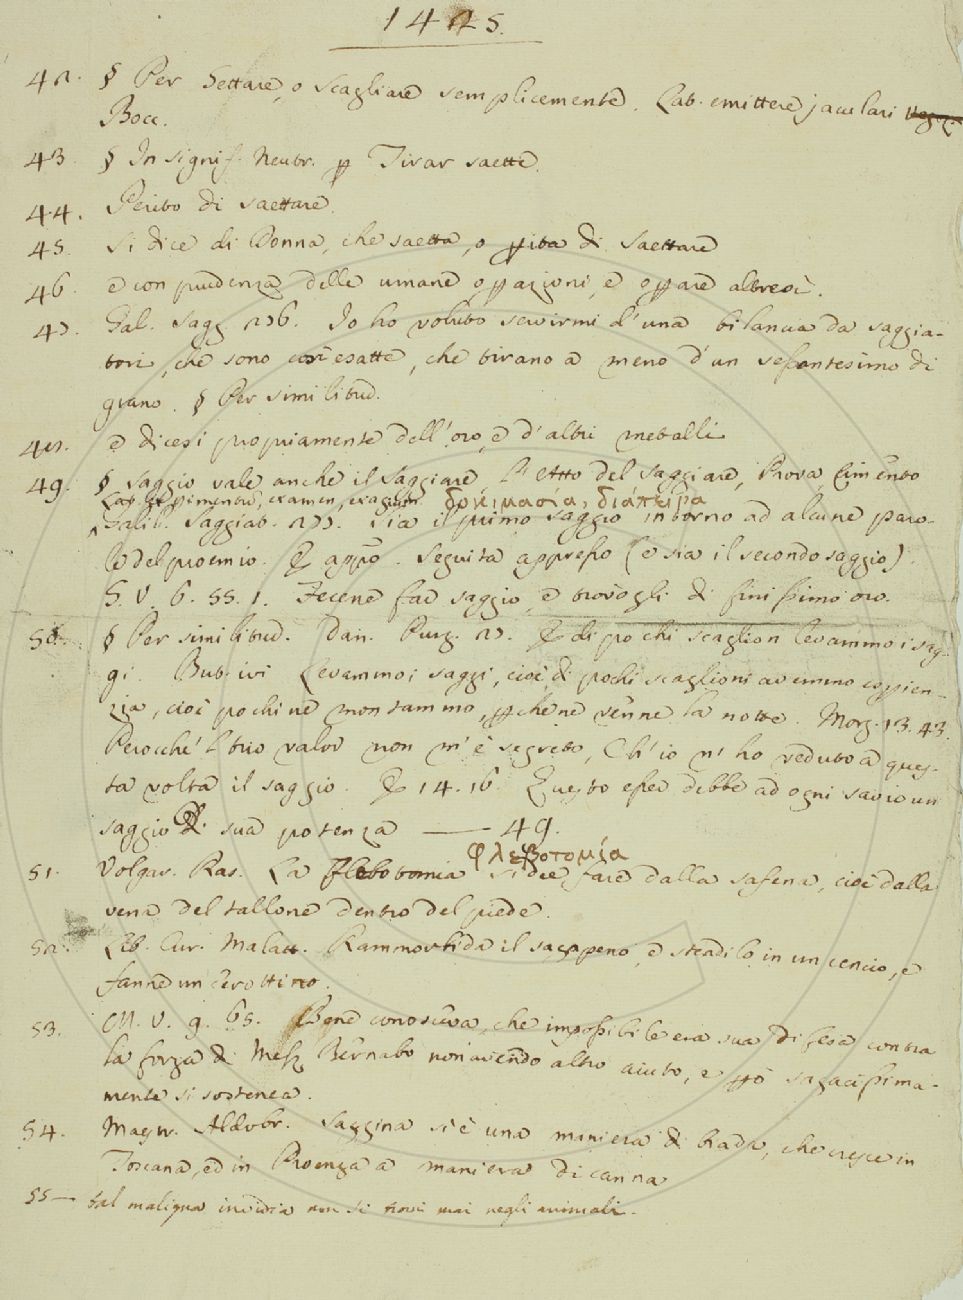 1425.
42. § Per Gettare, o scagliare semplicemente. Lat. emittere jaculari
Bocc.
43 § In signif. Neutr. p Tirar saette.
44. Perito di saettare.
45. Si dice di Donna, che saetta, o pita di Saettare
46. e con prudenza delle umane oppazioni, e oppare altresì.
47. Gal. Sagg. 276. Io ho voluto servirmi d'una bilancia da saggia-
tori, che sono così esatte, che tirano a meno d'un sessantesimo di
grano. § Per similitud.
48. e dicesi propriamente dell'oro, e d'altri metalli
49. § Saggio vale anche il Saggiare, l'Atto del Saggiare, Prova, Cimento
Lat. experimentum, examen, exagium δοκιμασία, διαπείρα
Galil. Saggiat. 277. Sia il primo saggio intorno ad alcune paro-
le del proemio. E appo. Seguita appresso (e sia il secondo saggio).
G. V. 6. 55. 1. Fecene far saggio, e trovògli di finissimo oro.
50. § Per similitud. Dan. Purg. 27. E di pochi scaglion levammo i sag-
gi. But. ivi Levammo i saggi, cioè di pochi scaglioni avemmo espien-
zia, cioè pochi ne montammo, pchè ne venne la notte. Morg. 13. 43.
Perocchè 'l tuo valor non m'è segreto, Ch'io n'ho veduto a ques-
ta volta il saggio. E 14. 16. Questo esser debbe ad ogni savio un
saggio di sua potenza — 49.
φλεβοτομία
51. Volgar. Ras. La Flebotomia si dee fare dalla safena, cioè dalla
vena del tallone dentro del piede.
52. Lib. Cur. Malatt. Rammorbida il sagapeno, e stendilo in un cencio, e
fanne un cerottino.
53. M. V. 9. 65. Bene conosceva, che impossibile era sua difesa contra
la forza di Mess. Bernabo non avendo altro aiuto, e pò sagacissima-
mente si sostenea.
54. Maestr. Aldobr. Saggina si è una maniera di biada, che cresce in
Toscana, ed in Proenza a maniera di canna
55 — tal maligna invidia non si trovi mai negli animali.